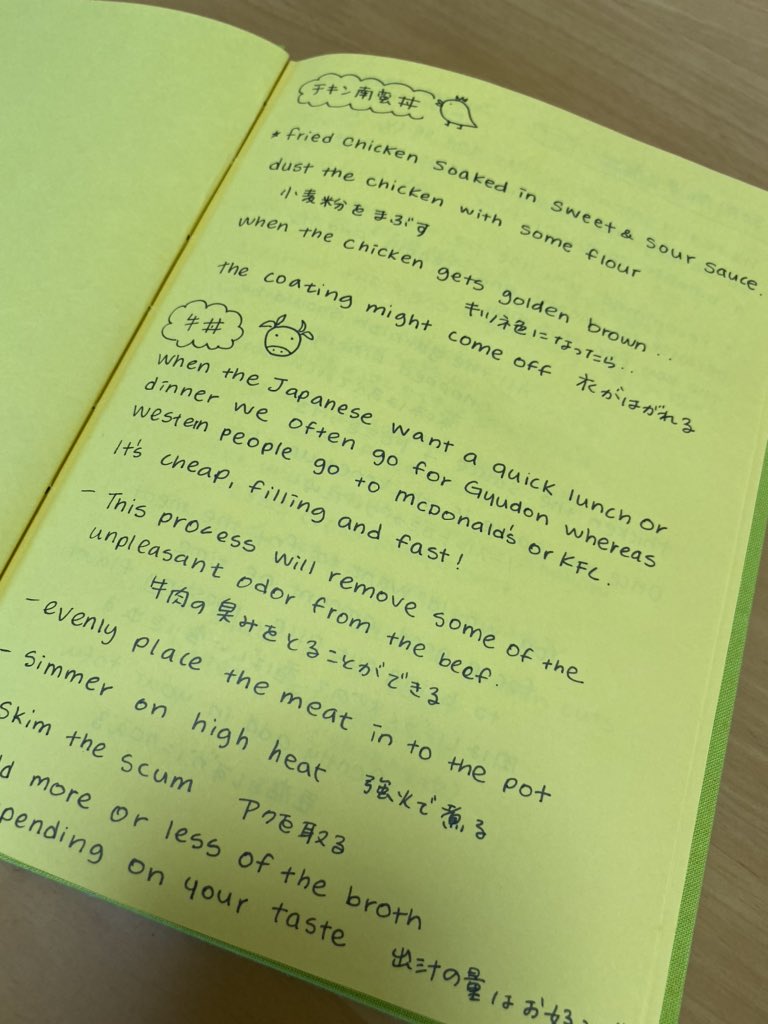 チキン南蛮丼
* fried chicken soaked in sweet & sour sauce.
dust the chicken with some flour
小麦粉をまぶす
when the chicken gets golden brown...
キツネ色になったら..
the coating might come off 衣がはがれる
牛丼
when the Japanese want a quick lunch or
dinner we often go for Gyudon whereas
western people go to McDonald's or KFC.
It's cheap, filling and fast!
- This process will remove some of the
unpleasant odor from the beef.
牛肉の臭みをとることができる
- evenly place the meat in to the pot
- simmer on high heat 強火で煮る
skim the scum アクを取る
more or less of the broth
pending on your taste
出汁の量はお好